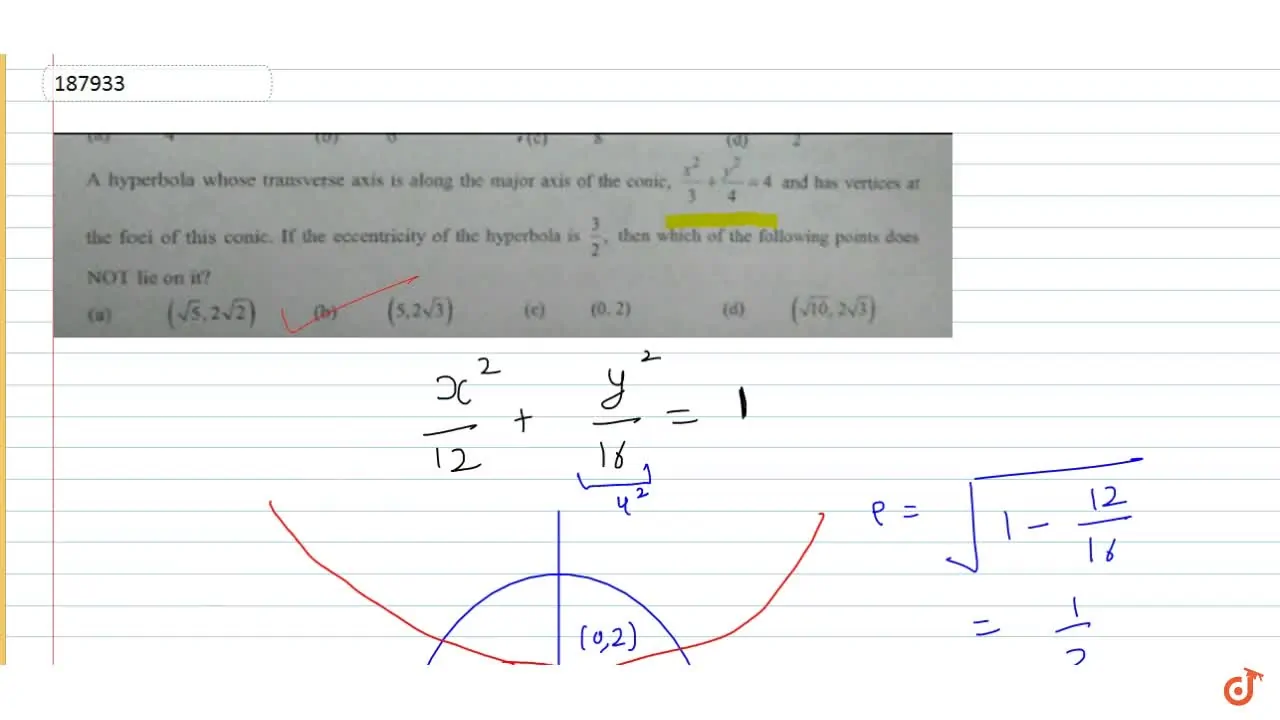 187933
(a) 4 (b) 6 (c) 8 (d) 2
A hyperbola whose transverse axis is along the major axis of the conic, x²/3 + y²/4 = 4 and has vertices at
the foci of this conic. If the eccentricity of the hyperbola is 3/2, then which of the following points does
NOT lie on it?
(a) (√5, 2√2) (b) (5, 2√3) (c) (0, 2) (d) (√10, 2√3)
x²/12 + y²/16 = 1
4²
e = √(1 - 12/16)
= 1/2
(0,2)